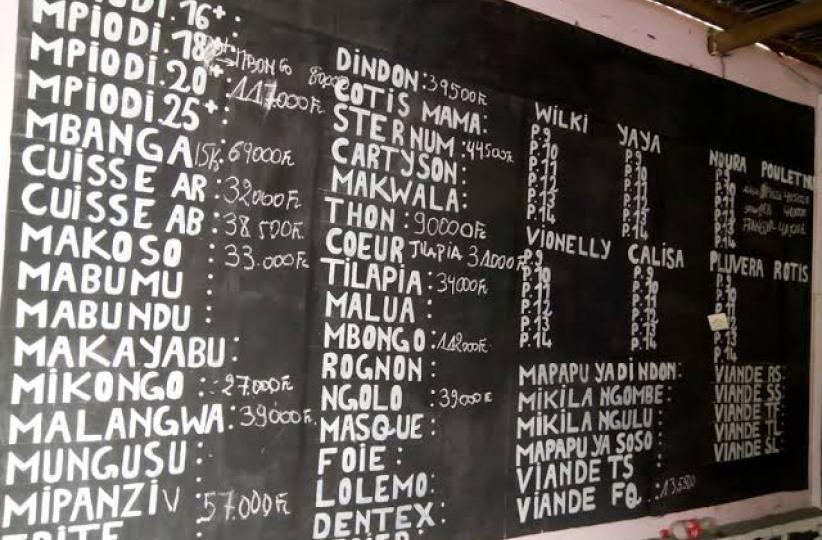 MPIODI.16+:
MPIODI.18
MBONGO
MPIODI.20+:117.000Fc
MPIODI.25+:
MBANGA 15k:69000Fc
CUISSE AR:32000Fc
CUISSE AB:38500Fc
MAKOSO :33.000Fc
MABUMU :
MABUNDU :
MAKAYABU:
MIKONGO :27.000Fc
MALANGWA:39000Fc
MUNGUSU :
MIPANZI :57.000Fc
DINDON:39500Fc
COTIS MAMA:
STERNUM:44500Fc
CARTYSON:
MAKWALA:
THON:90000Fc
COEUR TILAPIA 31000Fc
TILAPIA:34000Fc
MALUA :
MBONGO:112000Fc
ROGNON:
NGOLO :39000Fc
MASQUE:
FOIE:
LOLEMO:
DENTEX:
WILKI
P.9
P.10
P.11
P.12
P.13
P.14
YAYA
P.9
P.10
P.11
P.12
P.13
P.14
NOURA POULET
P.9
P.10
P.11
P.12
P.13
P.14
VIONELLY
P.9
P.10
P.11
P.12
P.13
P.14
CALISA
P.9
P.10
P.11
P.12
P.13
P.14
PLUVERA ROTIS
P.9
P.10
P.11
P.13
P.14
MAPAPU YA DINDON:
MIKILA NGOMBE:
MIKILA NGULU:
MAPAPU YA SOSO:
VIANDE TS :
VIANDE FQ :13.500
VIANDE RS:
VIANDE SS:
VIANDE TF:
VIANDE TL:
VIANDE SL: